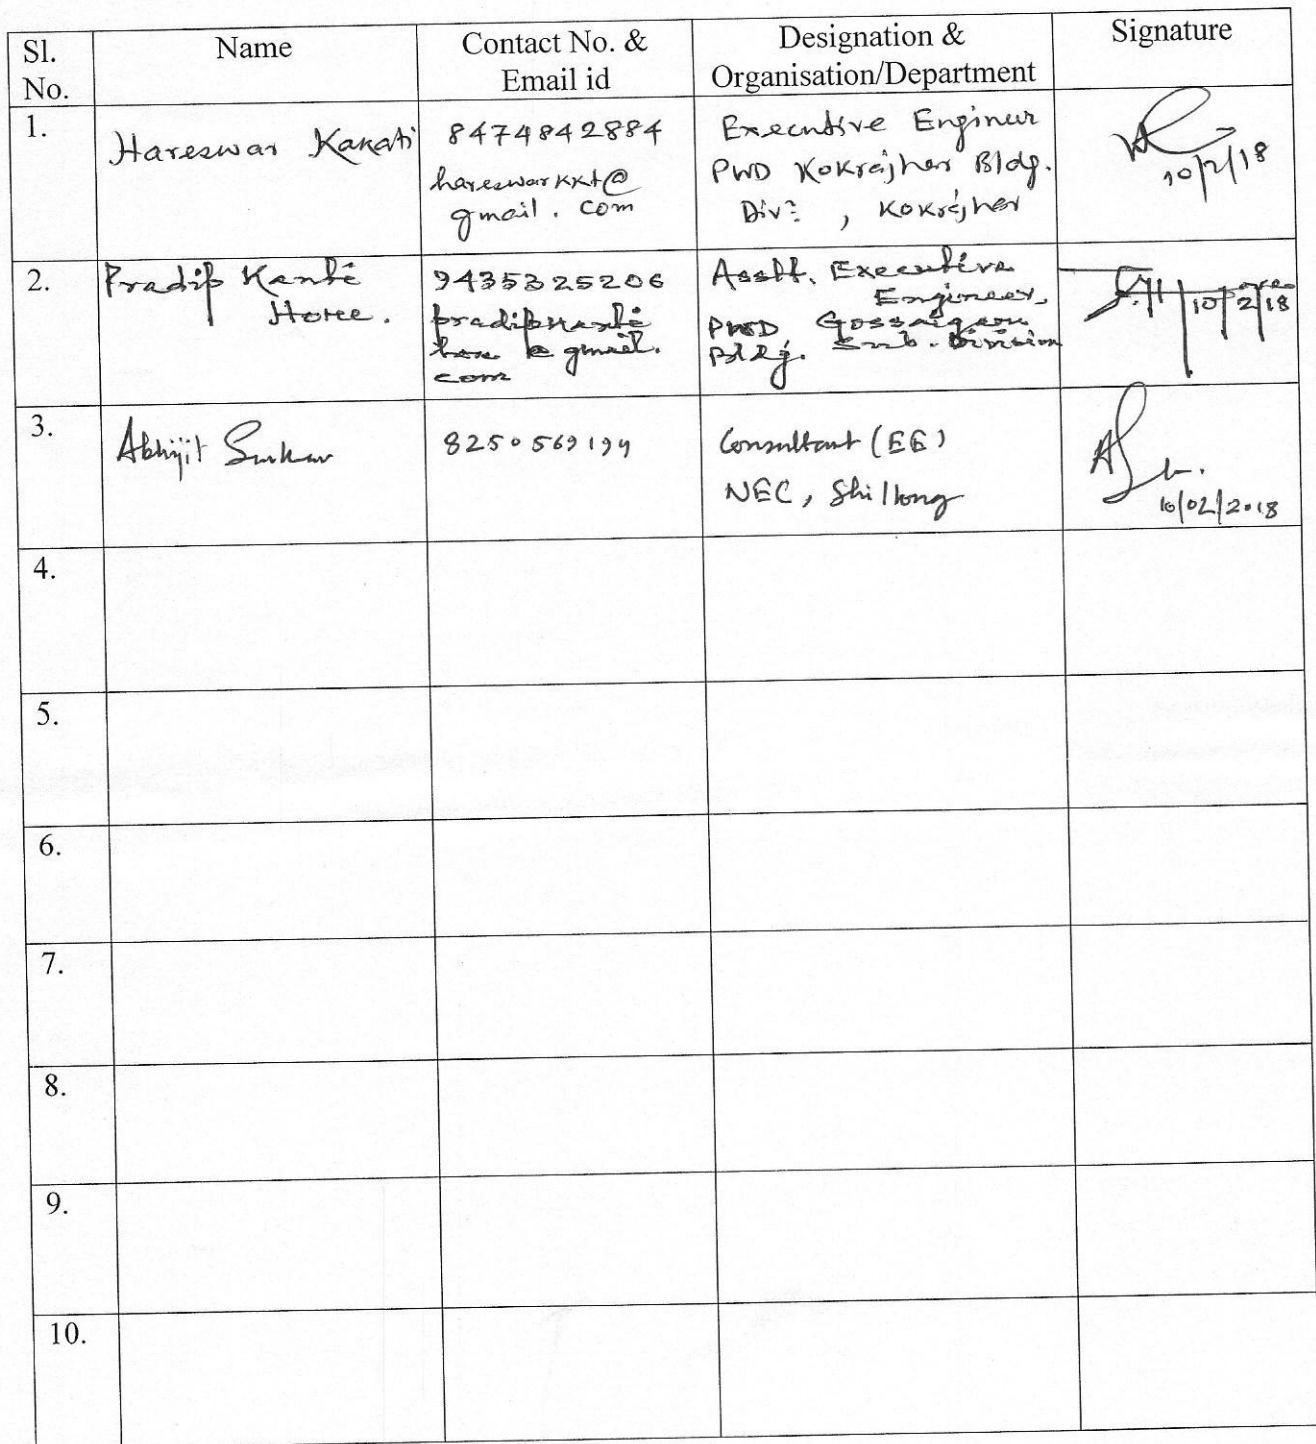 Sl. No.
Name
Contact No. & Email id
Designation & Organisation/Department
Signature
1.
Hareswar Kakati
8474842884
hareswarkkt@
gmail. com
Executive Engineer
PWD Kokrajhar Bldg.
Divn, Kokrajhar
10/2/18
2.
Pradip Kanti
Horee.
9435325206
pradipkanti
hore @ gmail.
com
Asstt. Executive
Engineer,
PWD Gossaigaon
Bldg. Sub-Division
10/2/18
3.
Abhijit Sarkar
8250569194
Consultant (EE)
NEC, Shillong
10/02/2018
4.
5.
6.
7.
8.
9.
10.